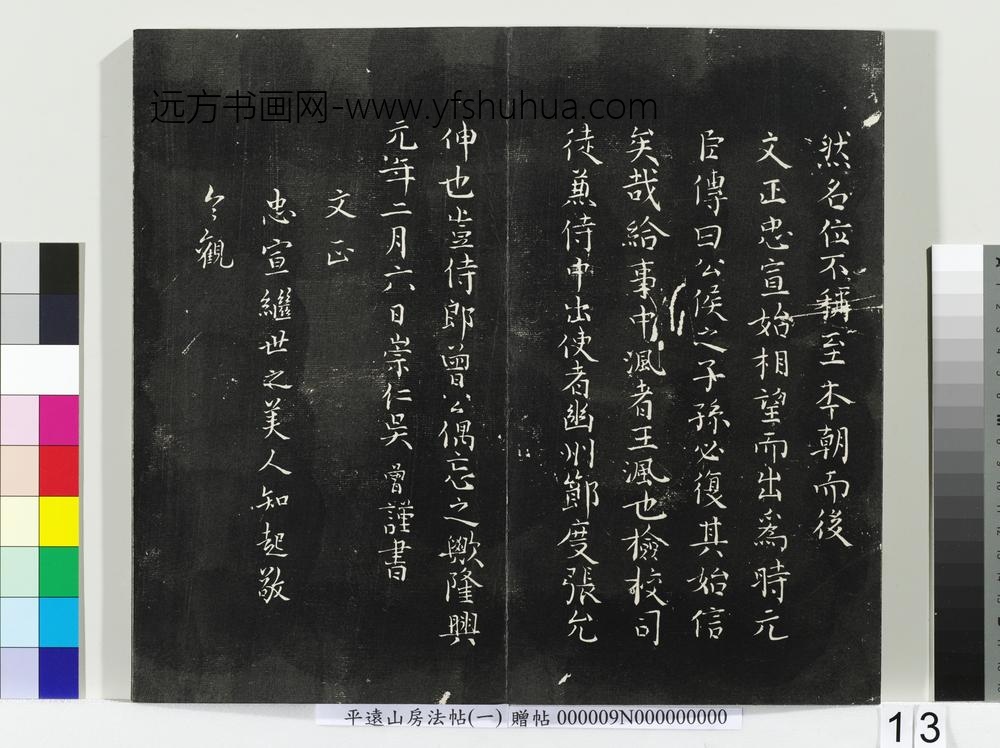 远方书画网-www.yfshuhua.com
然名位不稱至本朝而後
文正忠宣始相望而出爲時元
臣傳曰公侯之子孫必復其始信
矣哉給事中渢者王渢也檢校司
徒兼侍中出使者幽州節度張允
伸也豈侍郎曾公偶忘之歟隆興
元年二月六日崇仁吳曾謹書
文正
忠宣繼世之美人知起敬
今觀
平遠山房法帖(一) 贈帖 000009N000000000
13